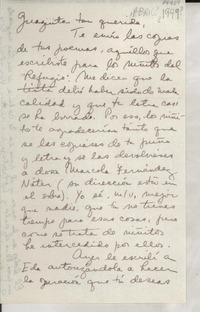 [ABRIL, 1949?]
Juaquita tan querida,
Te envío las copias
de tus poemas, aquéllos que
escribiste para los niñitos del
"Refugio". Me dicen que la
tinta debió haber sido de mala
calidad y que tu letra casi
se ha borrado. Por eso, los niñi-
tos te agradecerían tanto que
se los copiases de tu puño
y letra y se los devolvieses
a doña Marcola Fernández
Náter (su dirección está en
el sobre). Yo sé, m/v, mejor
que nadie, que tú no tienes
tiempo para esas cosas, pero
como se trata de niñitos
he intercedido por ellos.
Ayer le escribí a
Eda autorizándola a hacer
la operación que tú deseas